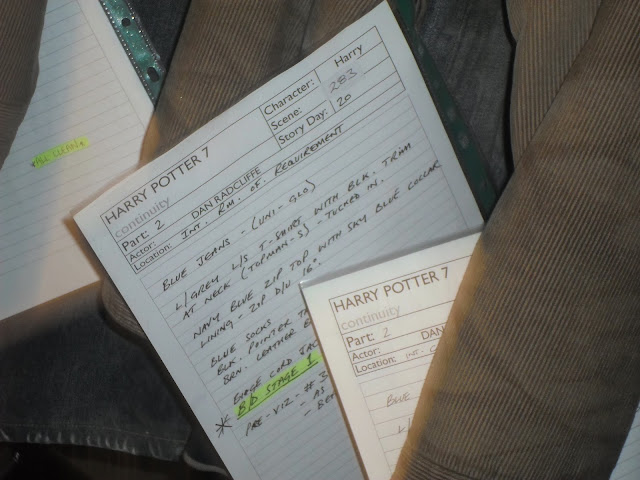 HARRY POTTER 7
continuity
Part: 2
Actor: DAN RADCLIFFE
Location: INT. RM. OF. REQUIREMENT
Character: Harry
Scene: 283
Story Day: 20
BLUE JEANS - (UNI-GLO)
L/GREY L/S T-SHIRT WITH BLK. TRIM
AT NECK (TOPMAN-S) - TUCKED IN.
NAVY BLUE ZIP TOP WITH SKY BLUE COLLAR
LINING - ZIP D/U 16".
BLUE SOCKS
BLK. POINTER
BRN. LEATHER
CORD
* B/D STAGE 1
PRE-VIZ-
- AS
HARRY POTTER 7
continuity
Part: 2
Actor: DAN
Location: INT.
BLUE
L/